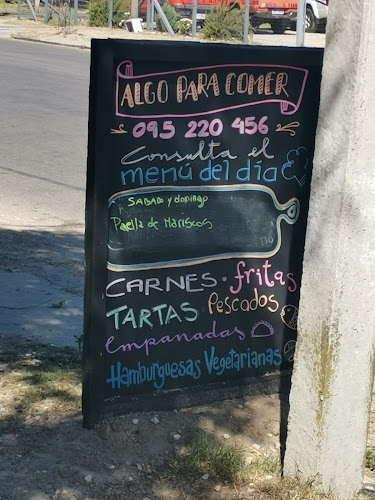 ALGO PARA COMER
095 220 456
Consulta el
menú del día
SABADO y domingo
Paella de Mariscos
CARNES · fritas
TARTAS Pescados
empanadas
Hamburguesas Vegetarianas